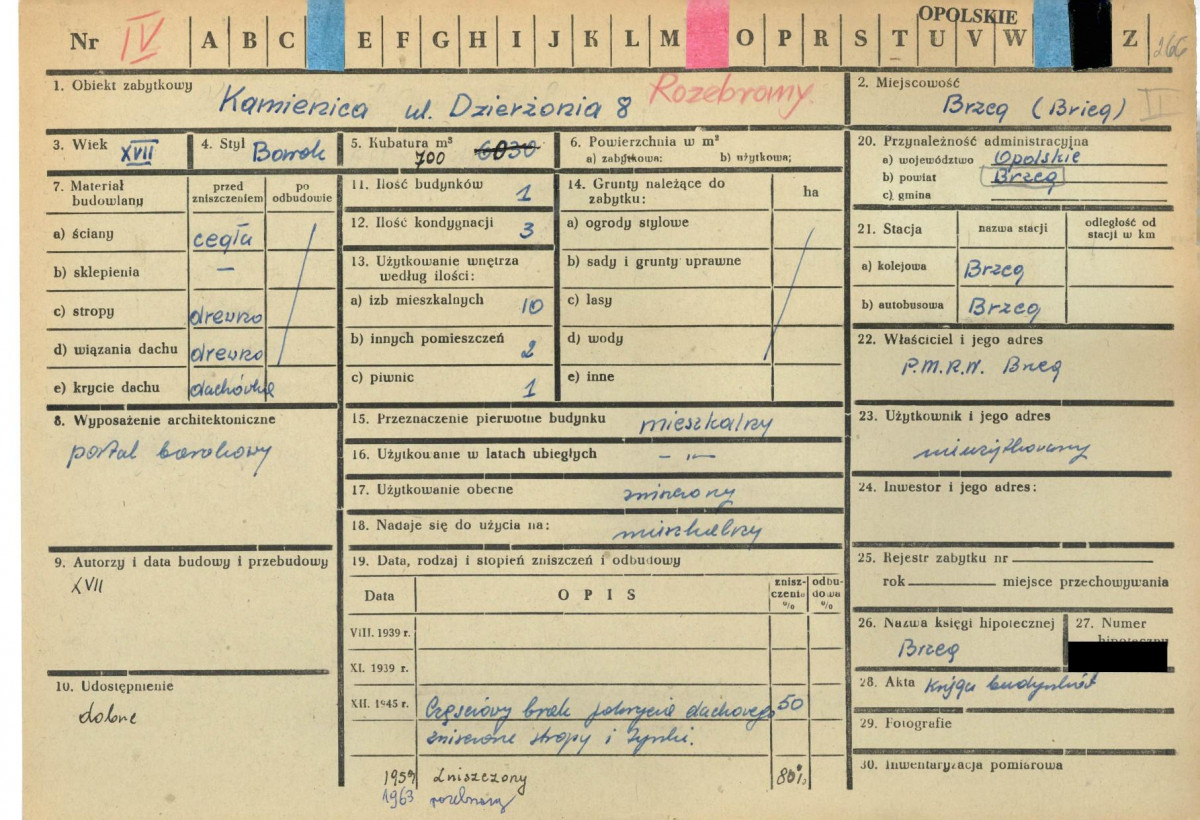 OPOLSKIE
Nr IV A B C E F G H I J K L M O P R S T U V W Z 266
1. Obiekt zabytkowy
Kamienica ul. Dzierżonia 8
Rozebrany.
2. Miejscowość
Brzeg (Brieg)
II
3. Wiek XVII
4. Styl Barok
5. Kubatura m³
700 6030
6. Powierzchnia w m²
a) zabytkowa: b) użytkowa;
7. Materiał budowlany
przed zniszczeniem
po odbudowie
a) ściany cegła
b) sklepienia —
c) stropy drewno
d) wiązania dachu drewno
e) krycie dachu dachówka
8. Wyposażenie architektoniczne
portal barokowy
9. Autorzy i data budowy i przebudowy
XVII
10. Udostępnienie
dobre
11. Ilość budynków 1
12. Ilość kondygnacji 3
13. Użytkowanie wnętrza
według ilości:
a) izb mieszkalnych 10
b) innych pomieszczeń 2
c) piwnic 1
14. Grunty należące do
zabytku:
ha
a) ogrody stylowe
b) sady i grunty uprawne
c) lasy
d) wody
e) inne
15. Przeznaczenie pierwotne budynku mieszkalny
16. Użytkowanie w latach ubiegłych — „ —
17. Użytkowanie obecne zniszczony
18. Nadaje się do użycia na: mieszkalny
19. Data, rodzaj i stopień zniszczeń i odbudowy
Data OPIS znisz-czenia % odbu-dowa %
VIII. 1939 r.
XI. 1939 r.
XII. 1945 r. Częściowy brak pokrycia dachowego 50
zniszczone stropy i tynki.
1959 zniszczony 80%
1963 rozebrany
20. Przynależność administracyjna
a) województwo Opolskie
b) powiat Brzeg
c) gmina
21. Stacja
nazwa stacji
odległość od stacji w km
a) kolejowa Brzeg
b) autobusowa Brzeg
22. Właściciel i jego adres
P.M.R.N. Brzeg
23. Użytkownik i jego adres
nieużytkowany
24. Inwestor i jego adres:
25. Rejestr zabytku nr
rok miejsce przechowywania
26. Nazwa księgi hipotecznej
Brzeg
27. Numer
hipoteczny
28. Akta Księga budynków
29. Fotografie
30. Inwentaryzacja pomiarowa